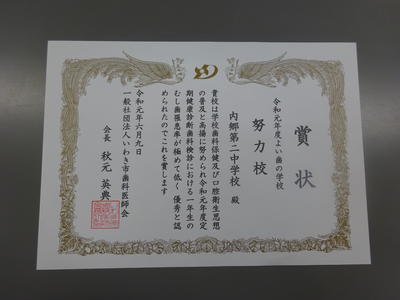 賞状
令和元年度よい歯の学校
努力校
内郷第二中学校 殿
貴校は学校歯科保健及び口腔衛生思想
の普及と高揚に努められ令和元年度定
期健康診断歯科検診における一年生の
むし歯罹患率が極めて低く優秀と認
められたのでこれを賞します
令和元年六月九日
一般社団法人いわき市歯科医師会
会長 秋元 英典